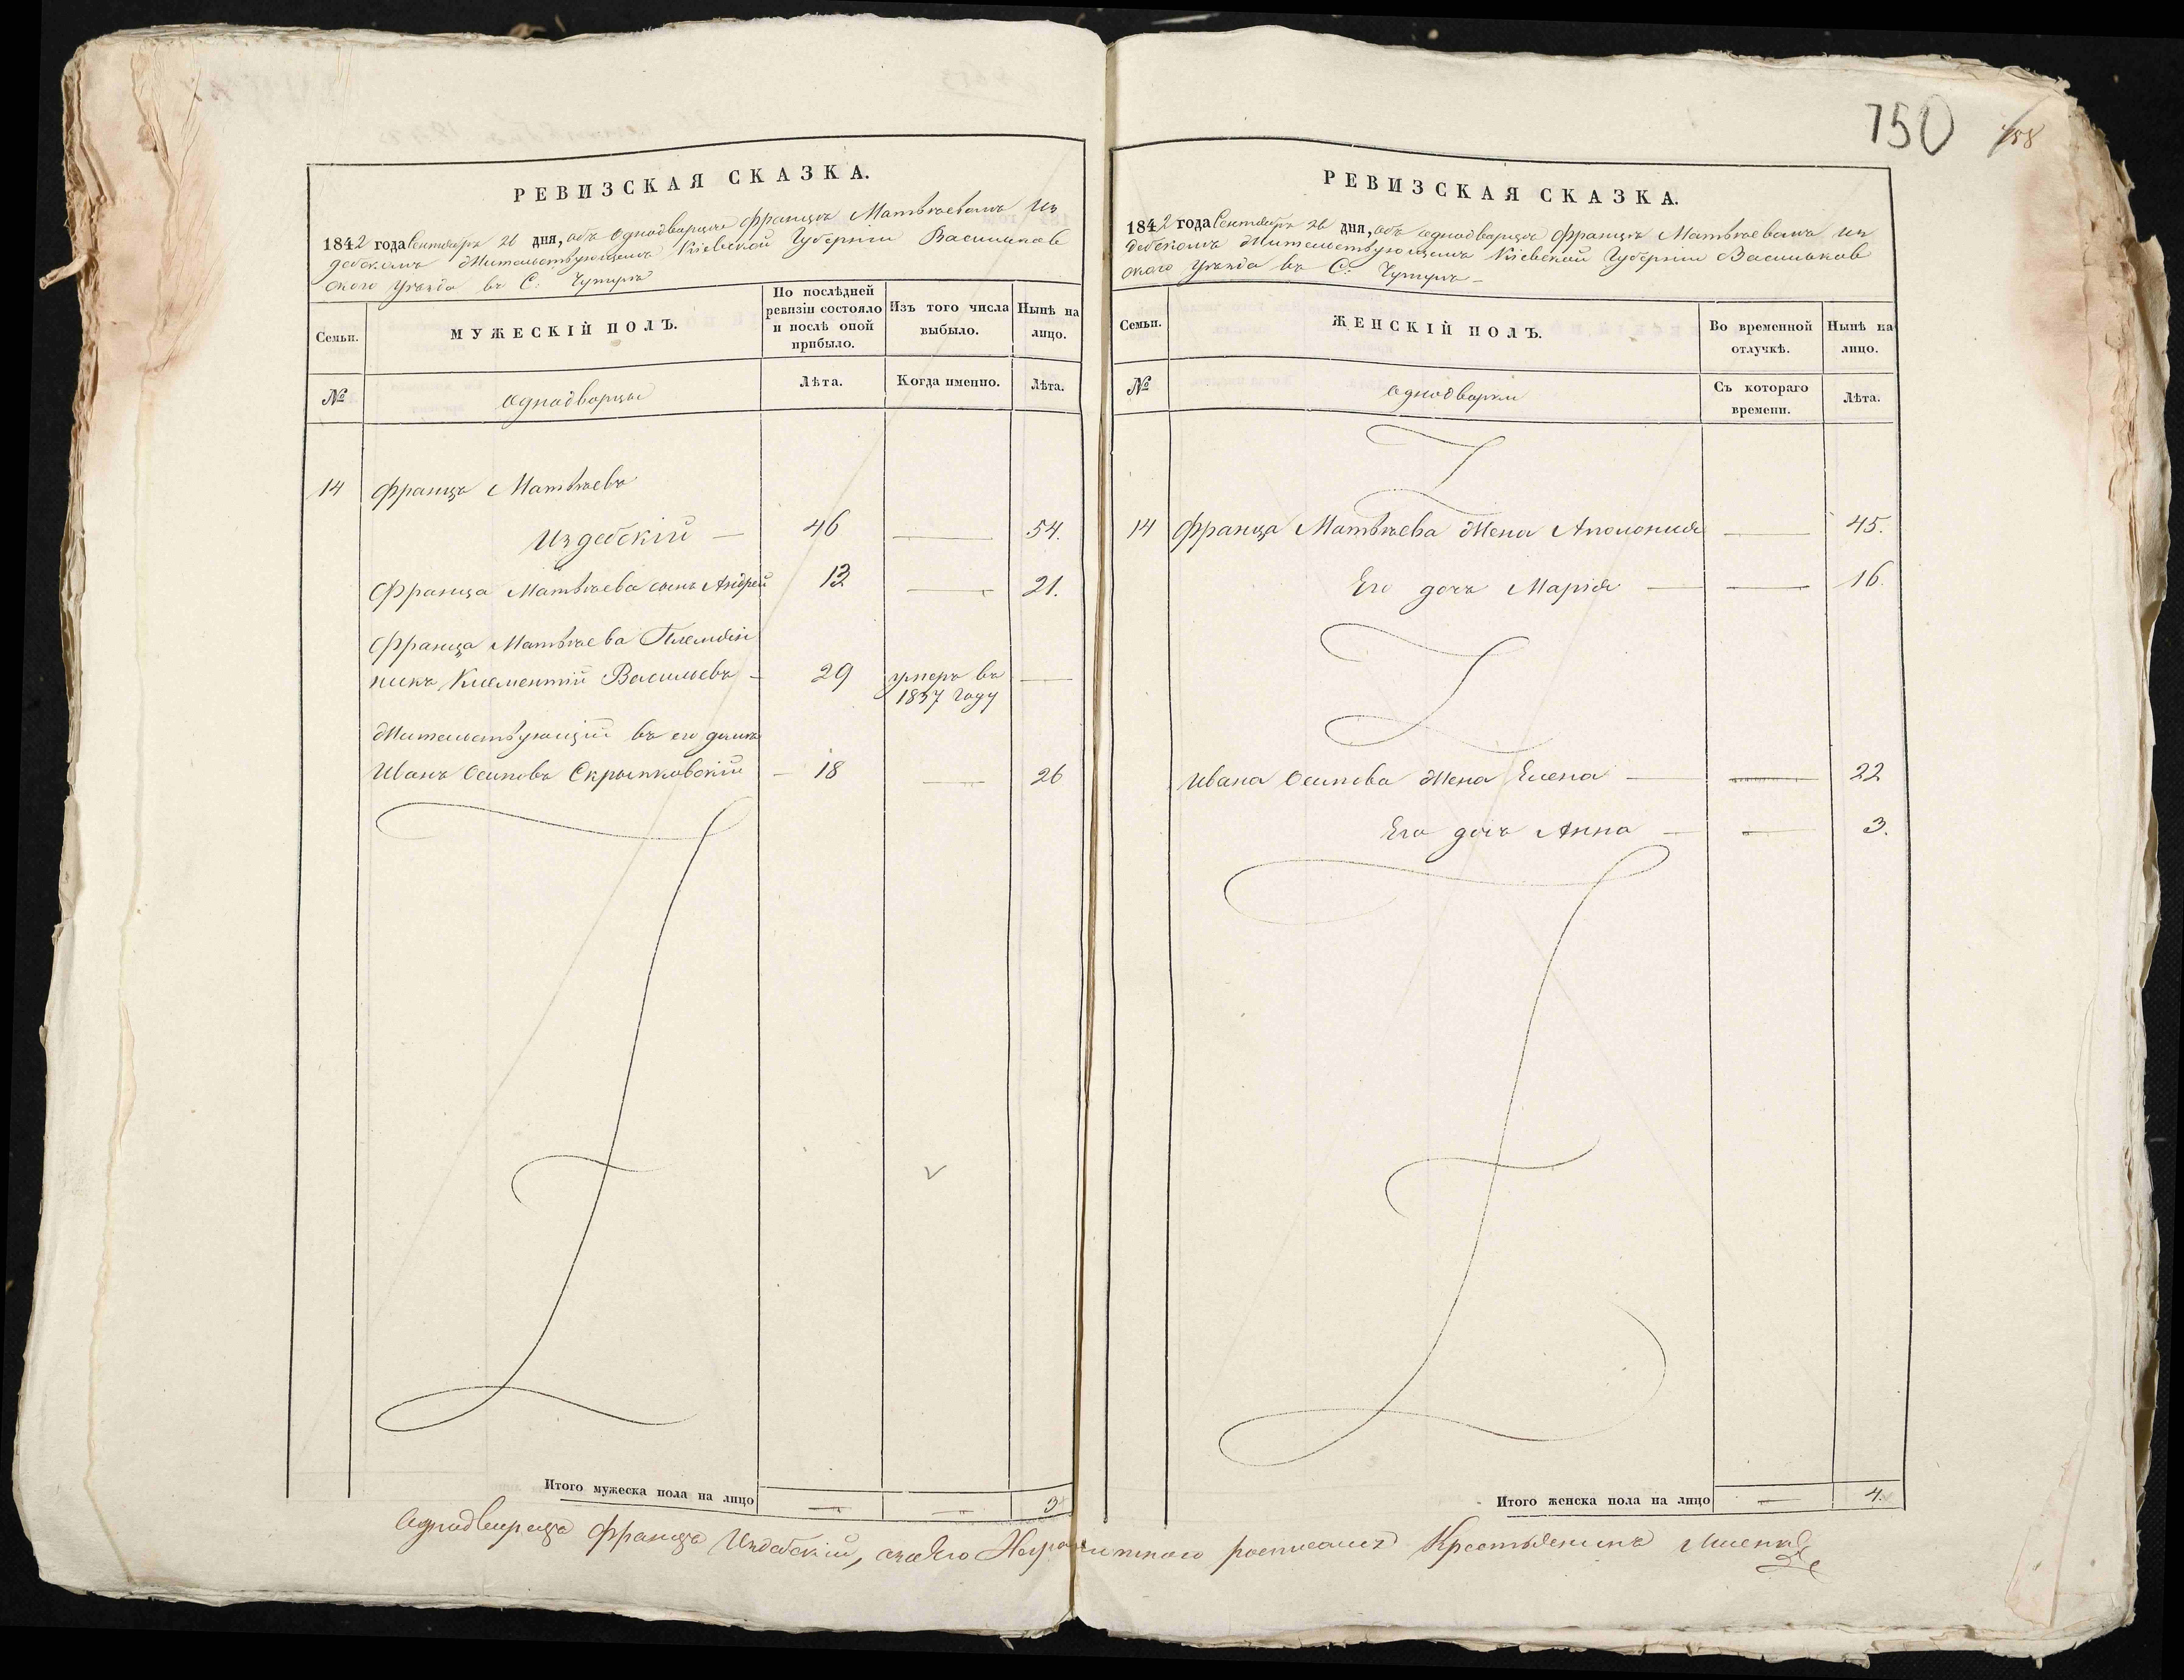 РЕВИЗСКАЯ СКАЗКА.
1842 года Сентября 26 дня, объ однодворцѣ Францѣ Матвѣевомъ Из
дебскомъ Жительствующемъ Кіевской Губерніи Васильков
ского уѣзда въ С:
Семьи.
МУЖЕСКІЙ ПОЛЪ.
По послѣдней ревизіи состояло и послѣ оной прибыло.
Изъ того числа выбыло.
Нынѣ на лицо.
№
Однодворцы
Лѣта.
Когда именно.
Лѣта.
14 Францъ Матвѣевъ
Издебскій — 46 — 54.
Франца Матвѣева сынъ Андрей 13 — 21.
Франца Матвѣева Племян
никъ Климентій Васильевъ — 29 умеръ въ —
1837 году
Жительствующій въ его домѣ
Иванъ Осиповъ Скрыпковскій — 18 — 26
Итого мужеска пола на лицо — — 3
750 758
РЕВИЗСКАЯ СКАЗКА.
1842 года Сентября 26 дня, объ однодворцѣ Францѣ Матвѣевомъ Из
дебскомъ Жительствующемъ Кіевской Губерніи Васильков
ского уѣзда въ С:
Семьи.
ЖЕНСКІЙ ПОЛЪ.
Во временной отлучкѣ.
Нынѣ на лицо.
№
Однодворки
Съ котораго времени.
Лѣта.
14 Франца Матвѣева Жена Аполонія — 45.
Его дочь Марія — — 16.
Ивана Осипова Жена Елена — — 22
Его дочь Анна — — 3.
Итого женска пола на лицо — 4.
Однодворецъ Францъ Издебскій, а за его Неграмотного росписался Крестьянинъ